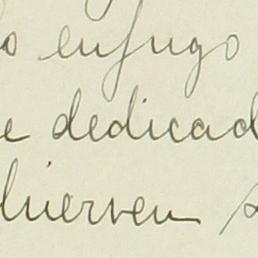 lo enjugo
e dedicad
hierven s